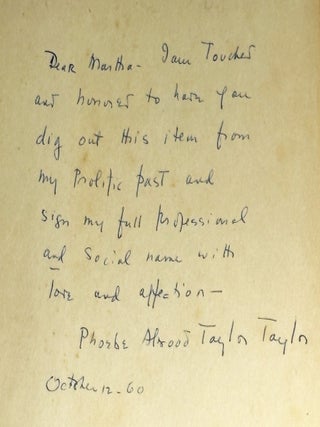 Dear Martha - I am Touched
and honored to have you
dig out this item from
my Prolific past and
sign my full Professional
and Social name with
love and affection -
Phoebe Atwood Taylor Taylor
October 12 - 60